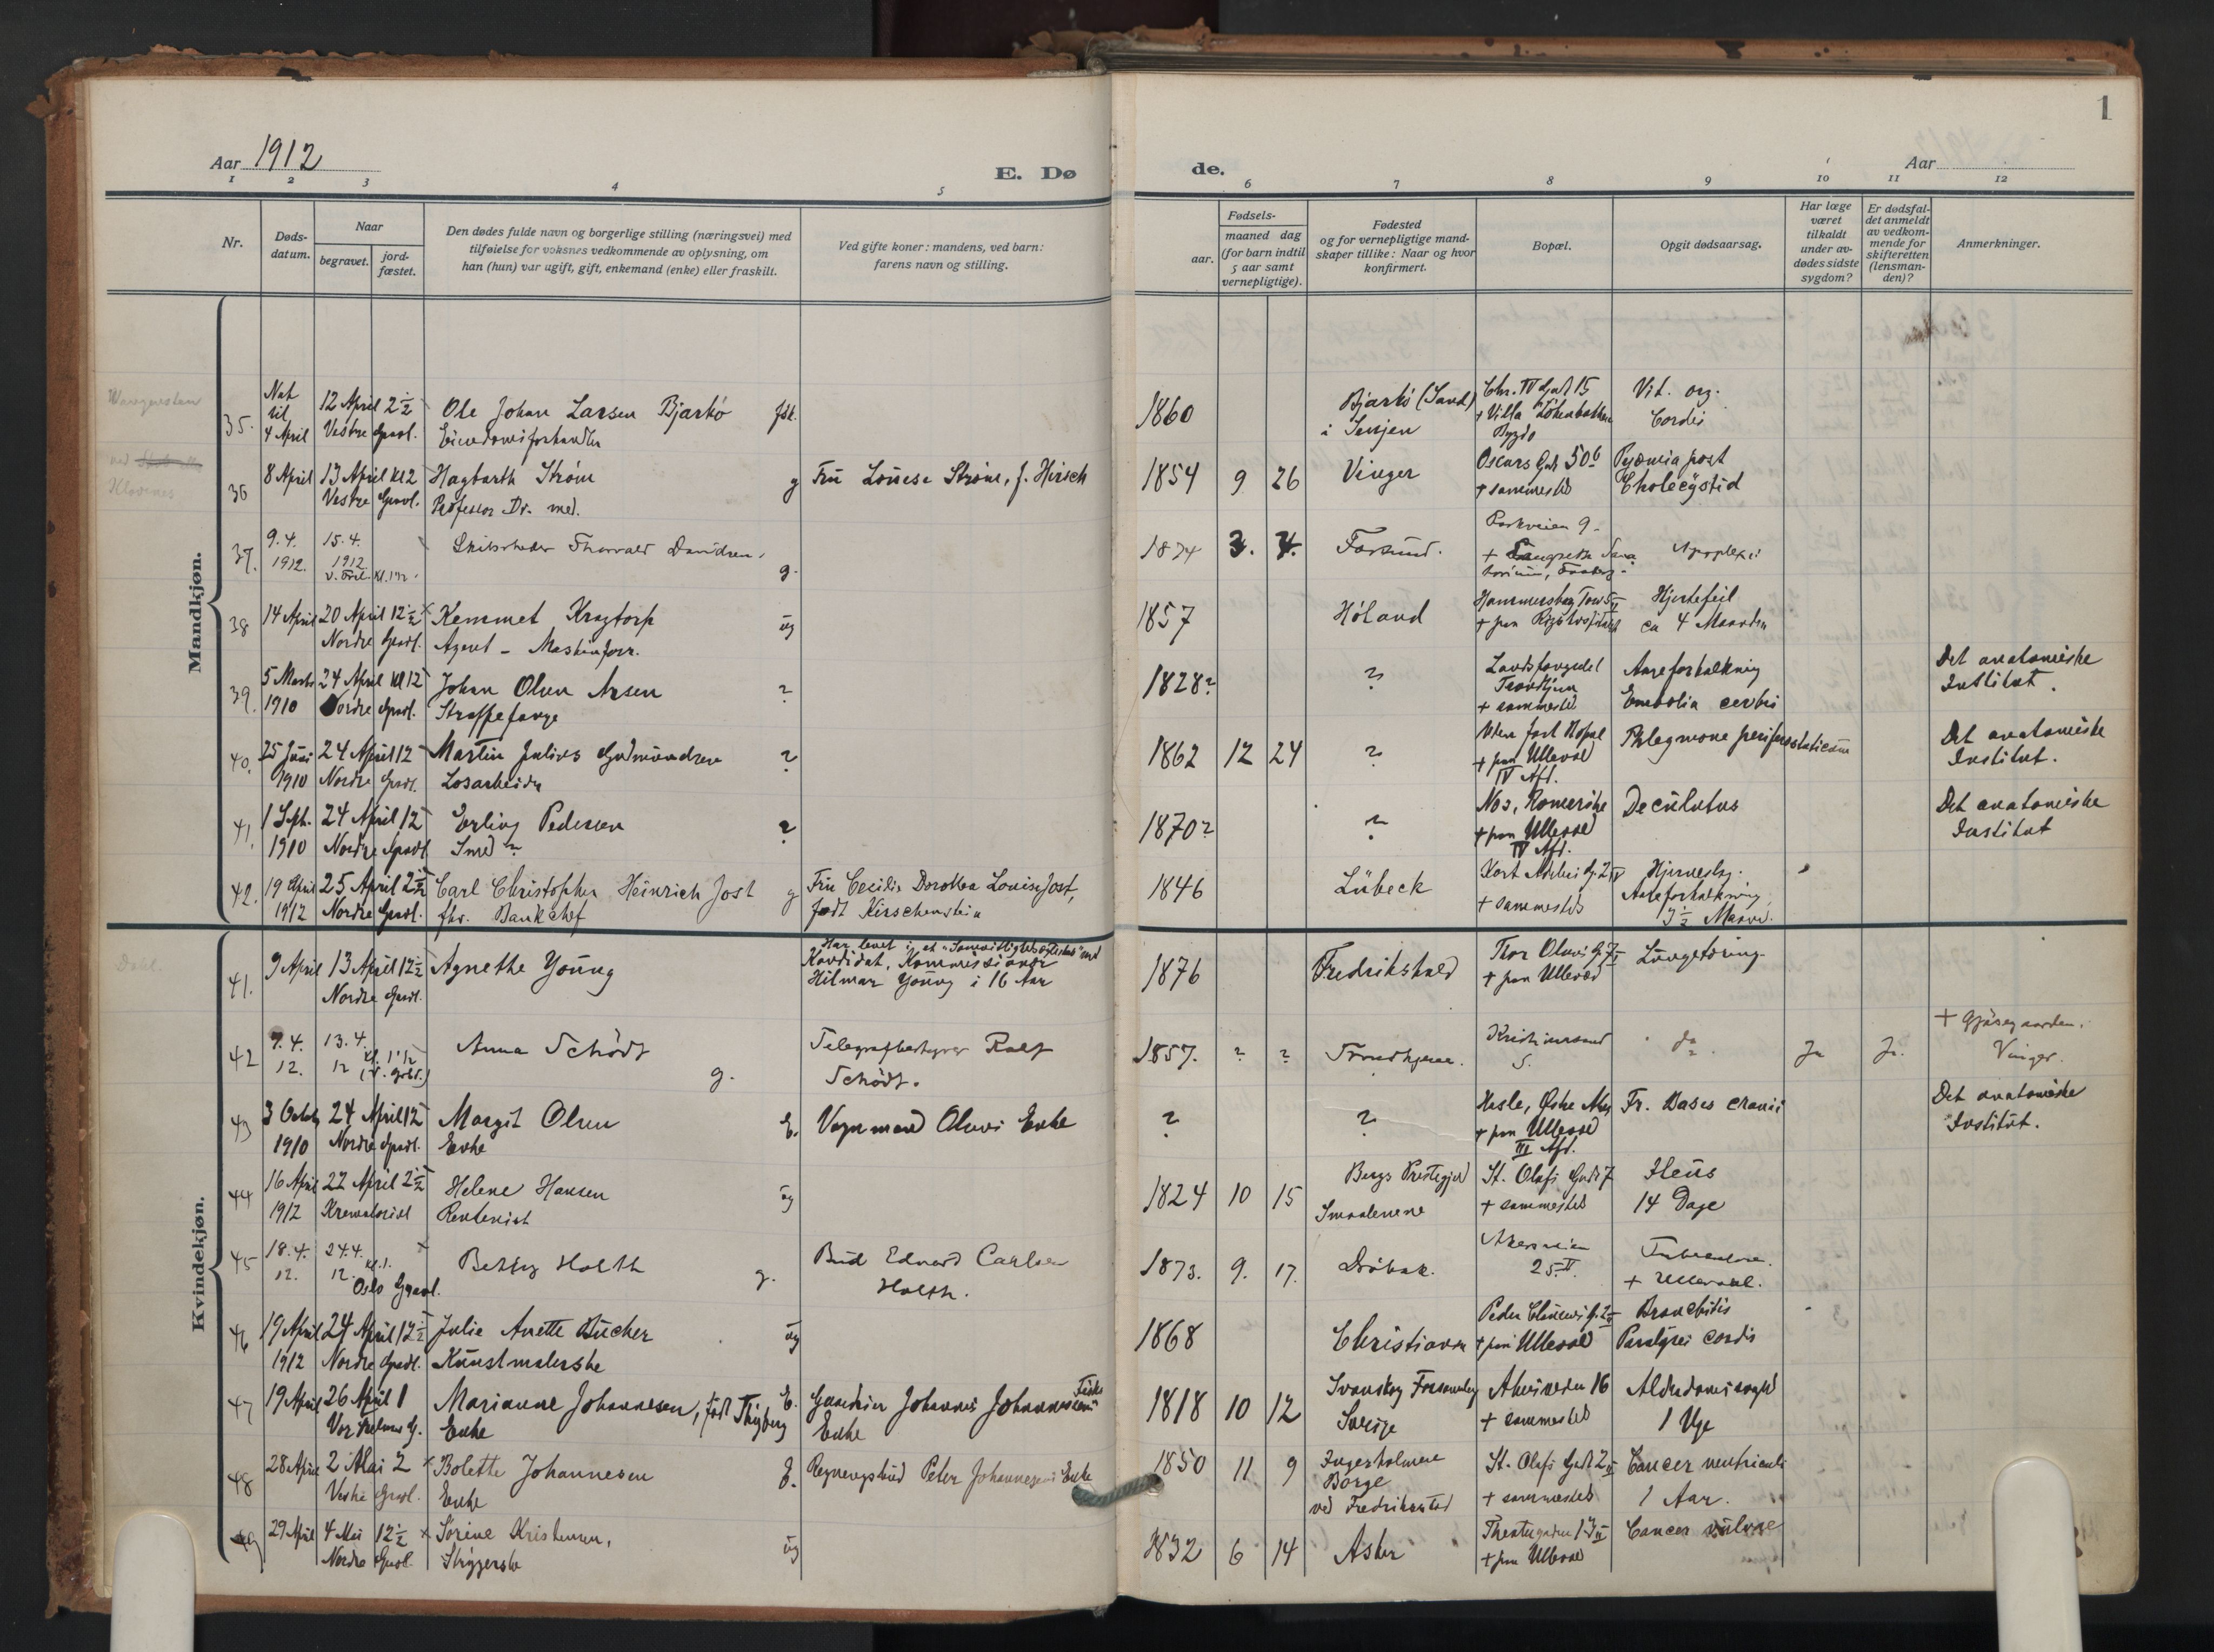 1
Aar 1912
E. Dø
de.
Aar
1 2 3 4 5 6 7 8 9 10 11 12
Nr.
Døds-
datum.
Naar
begravet.
jord-
fæstet.
Den dødes fulde navn og borgerlige stilling (næringsvei) med
tilføielse for voksnes vedkommende av oplysning, om
han (hun) var ugift, gift, enkemand (enke) eller fraskilt.
Ved gifte koner: mandens, ved barn:
farens navn og stilling.
Fødsels-
aar.
maaned dag
(for barn indtil
5 aar samt
vernepligtige).
Fødested
og for vernepligtige mand-
skaper tillike: Naar og hvor
konfirmert.
Bopæl.
Opgit dødsaarsag.
Har læge
været
tilkaldt
under av-
dødes sidste
sygdom?
Er dødsfal-
det anmeldt
av vedkom-
mende for
skifteretten
(lensman-
den)?
Anmerkninger.
Mandkjøn.
35. Nat til 4 April 12 April 2½ Vestre Gravl.
Ole Johan Larsen Bjarkö fsk.
Eiendomsforhandler
1860 Bjarkö (Sand) i Senjen
Chr. IV Gad 15 + Villa Bygdö
Vit. org. Cordis
36 8 April 13 April Kl 2 Vestre Gravl.
Hagbarth Strøm g
Professor Dr. med.
Frü Louise Strøm, f. Hirsch
1854 9 26 Vinger
Oscars Gd. 50 b + sammested
Pyæmia post Cholecÿstid
37. 9.4. 1912. 15.4. 1912
Skibsreder Thorvald Davidsen. g.
1874 3. 4. Farsund.
Parkveien 9.
Apoplexi
38 14 April 20 April 12½ Nordre Gravl.
Kemmet Kragtorp ug
Agent - Maskinforr.
1857 Höland
+ paa Rigshospitalet
Hjertefeil ca 4 Maaneder
39. 5 Marts 1910 24 April Kl 12 Nordre Gravl.
Johan Olsen Aasen ?
Straffefange
1828? ?
Landsfængslet Trondhjem + sammested
Aareforkalkning Embolia cerebri
Det anatomiske
Institut.
40. 25 Juni 1910 24 April 12 Nordre Gravl.
Martin Julius Gudmundsen ?
Løsarbeider
1862 12 24 ?
Uten fast Bopæl + paa Ullevol IV Afd.
Phlegmone
Det anatomiske
Institut.
41. 1 Sept. 1910 24 April 12 Nordre Gravl
Erling Pedersen ?
Smed?
1870? ?
Nes, Romerike + paa Ullevol IV Afd.
Decubitus
Det anatomiske
Institut
42. 19 April 1912 25 April 2½ Nordre Gravl.
Carl Christopher Heinrich Jost g
fhv. Bankchef
Frü Cecilie Dorothea Louise Jost,
født Kirschenstein
1846 Lübeck
+ sammested
Aareforkalkning
Kvindekjøn.
41. 9 April 13 April 12½ Nordre Gravl.
Agnethe Young
Har levet i et med
Kandidat, Kommissionær
Hilmar Young i 16 Aar
1876 Fredrikshald
+ paa Ullevol
Lungetæring
42 9.4. 12. 13.4. 12
Anna Schödt g.
Telegrafbestyrer Rolf
Schödt.
1857. ? ? Trondhjem.
Kristiansand S.
Ja Ja.
+ Gjøsegaarden.
Vinger.
43 3 Octob 1910 24 April 12 Nordre Gravl.
Margit Olsen E.
Enke
Vognmand Olsens Enke
? ?
Hasle, Østre Aker + paa Ullevol III Afd.
Fr. Basis cranii
Det anatomiske
Institut.
44 16 April 1912 22 April 2½ Krematoriet
Helene Hansen ug
Rentenist
1824 10 15 Bergs Prestegjeld Smaalenene
St. Olafs Gad 7 + sammested
Ileus 14 Dage
45 18.4. 12. 24.4. 12. Kl. 1. Oslo Gravl.
Betzy Holth g.
Bud Edvard Carlsen
Holth.
1873. 9. 17. Dröbak.
Akersveien 25 II.
+ Ullevaal.
46 19 April 1912 24 April 12½ Nordre Gravl.
Julie Anette Bücher ug
Kunstmalerske
1868 Christiania
+ paa Ullevol
Bronchitis Paralysis cordis
47 19 April 26 April 1 Vor Frelsers G.
Marianne Johannesen, født E.
Enke
Johannes Johannesens
Enke
1818 10 12 Svanskog Forsamling Sverige
Akersveien 16 + sammested
Alderdomssvaghed 1 Uge
48 28 April 2 Mai 2 Vestre Gravl.
Bolette Johannesen E.
Enke
Regningsbud Peter Johannesens Enke
1850 11 9 Ingerholmene Borge ved Fredrikstad
St. Olafs Gad 2 + sammested
Cancer ventriculi 1 Aar.
49 29 April 4 Mai 12½ Nordre Gravl.
Sorine Kristensen, ug
Strygerske
1832 6 14 Asker
Theatergaden + paa Ullevol
Cancer vulvae